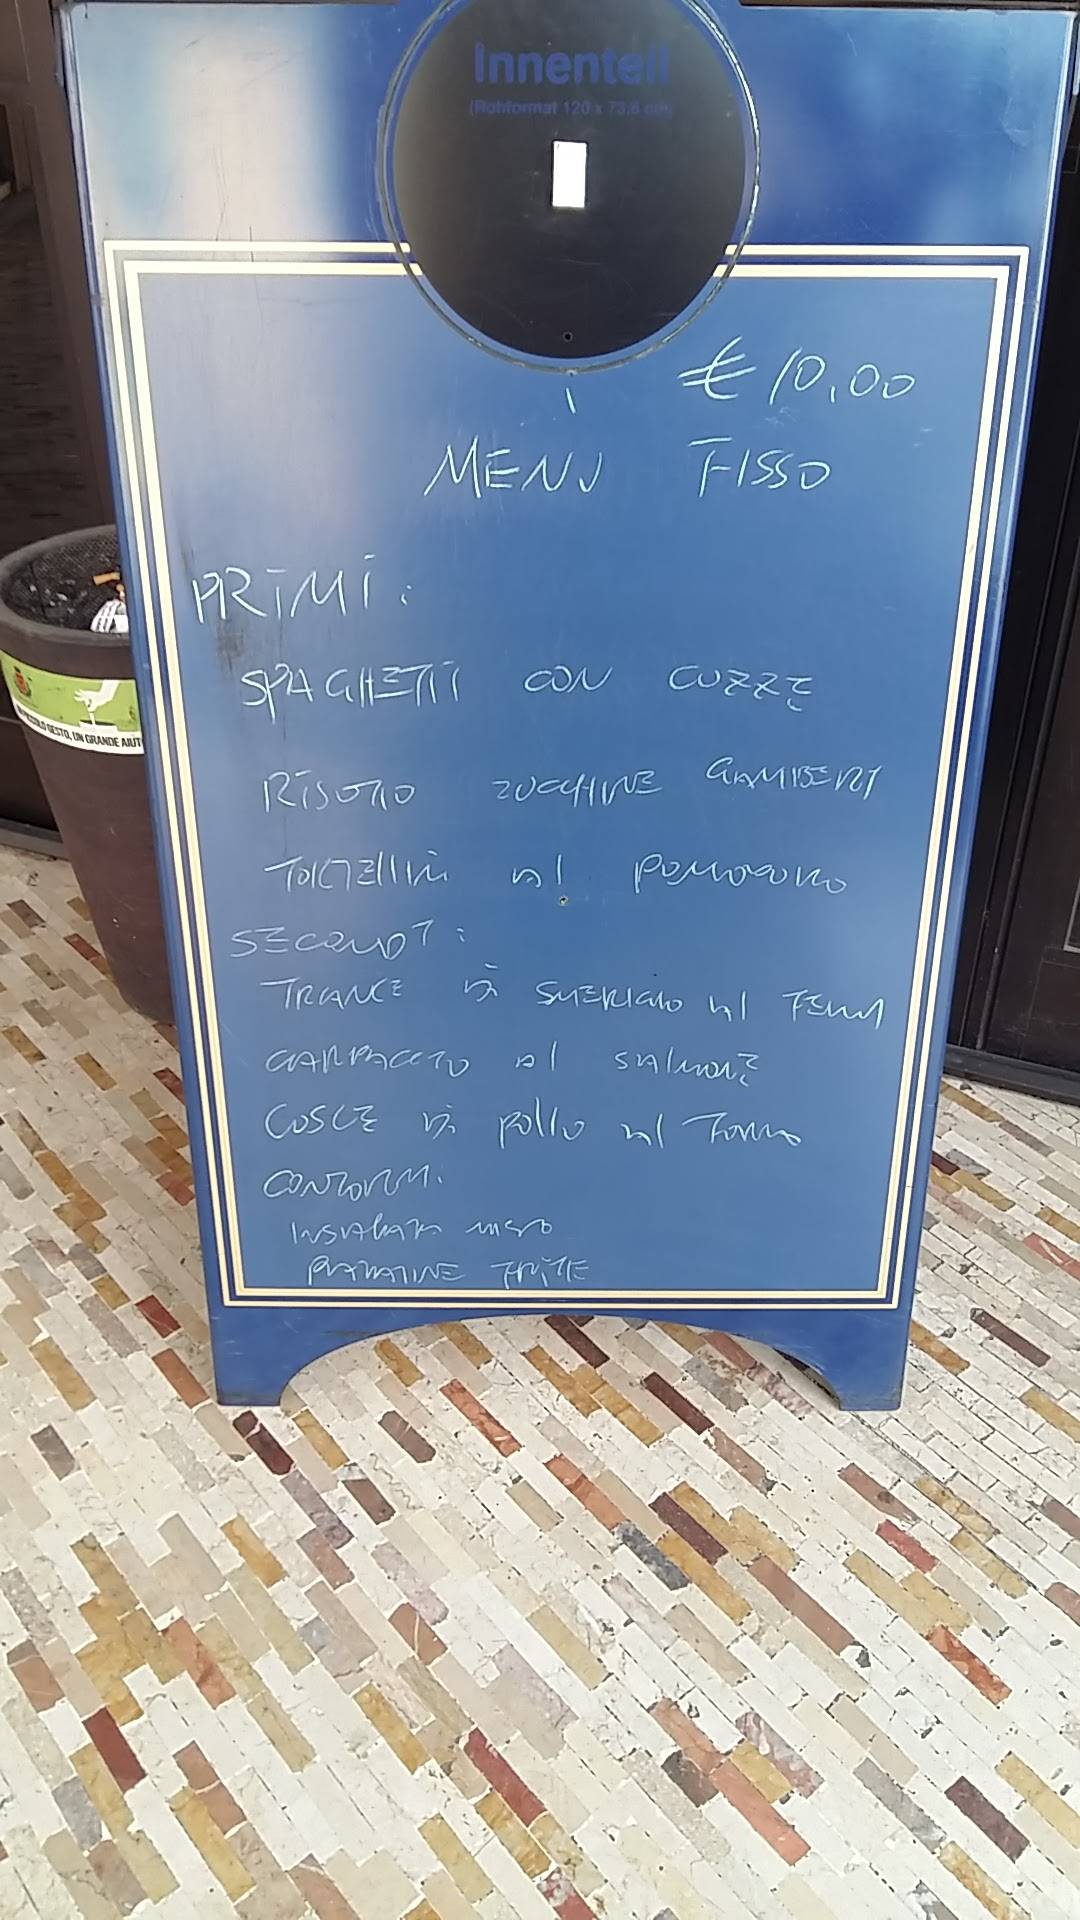 Innenteil
(Rohformat 120 x 73,8 cm)
€ 10,00
MENU FISSO
PRIMI:
SPAGHETTI CON COZZE
RISOTTO ZUCCHINE GAMBERI
TORTELLINI al POMODORO
SECONDI:
TRANCE di SMERIGLIO al FERRI
CARPACCIO al SALMONE
COSCE di pollo al FORNO
CONTORNI:
INSALATA MISTO
PATATINE FRITE
PICCOLO GESTO, UN GRANDE AIUTO